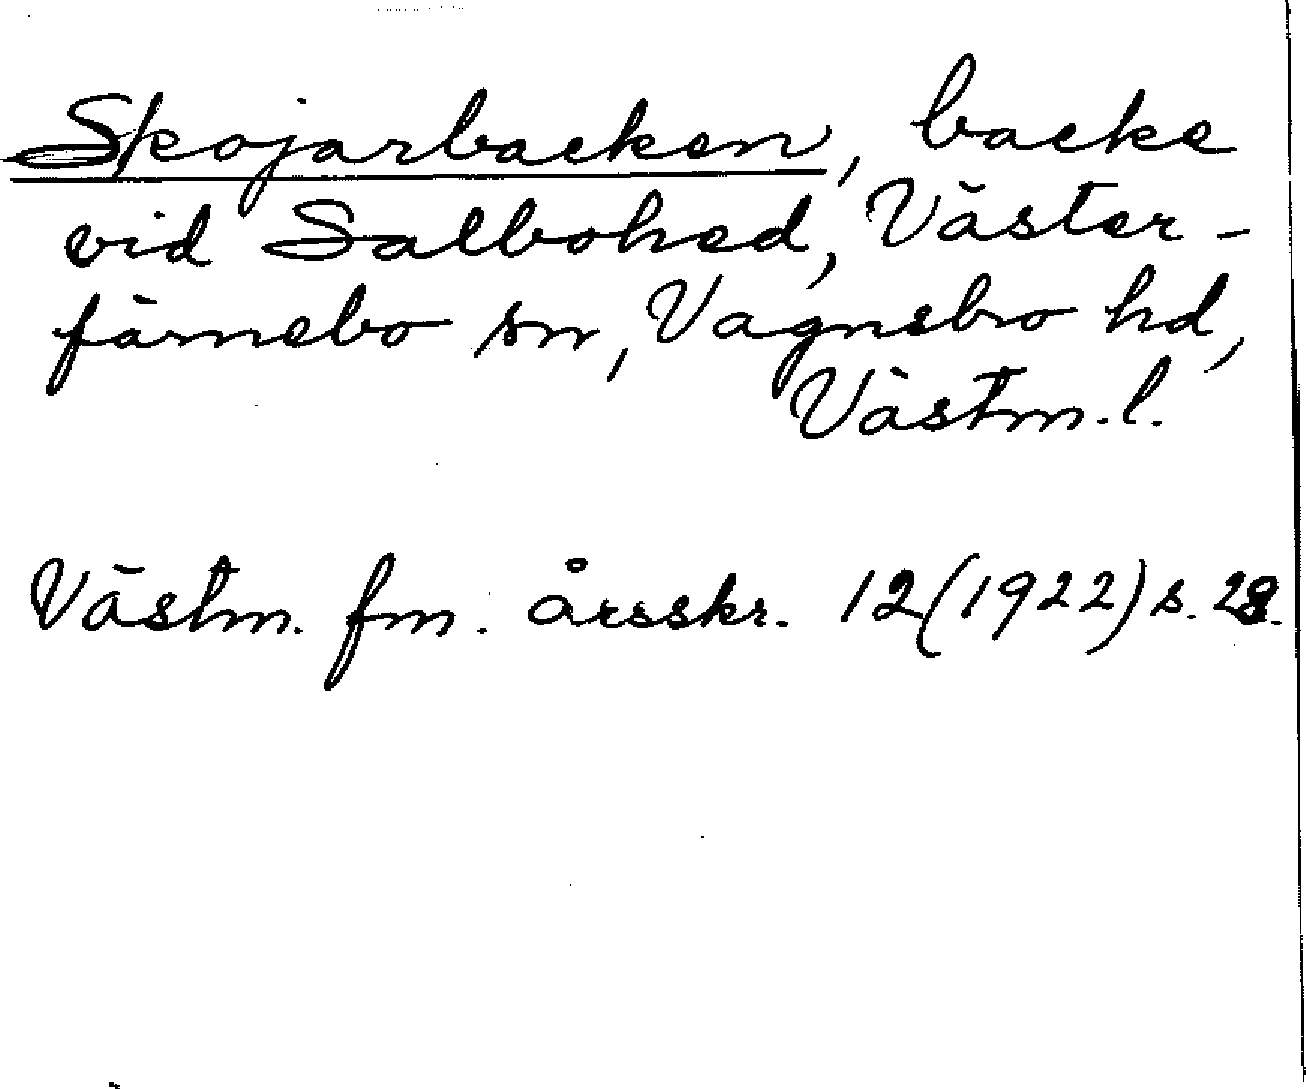 Skojarbacken, backe
vid Salbohed, Väster-
färnebo sn, Vagnsbro hd,
Västm. l.
Västm. fm. årsskr. 12 (1922) s. 28.